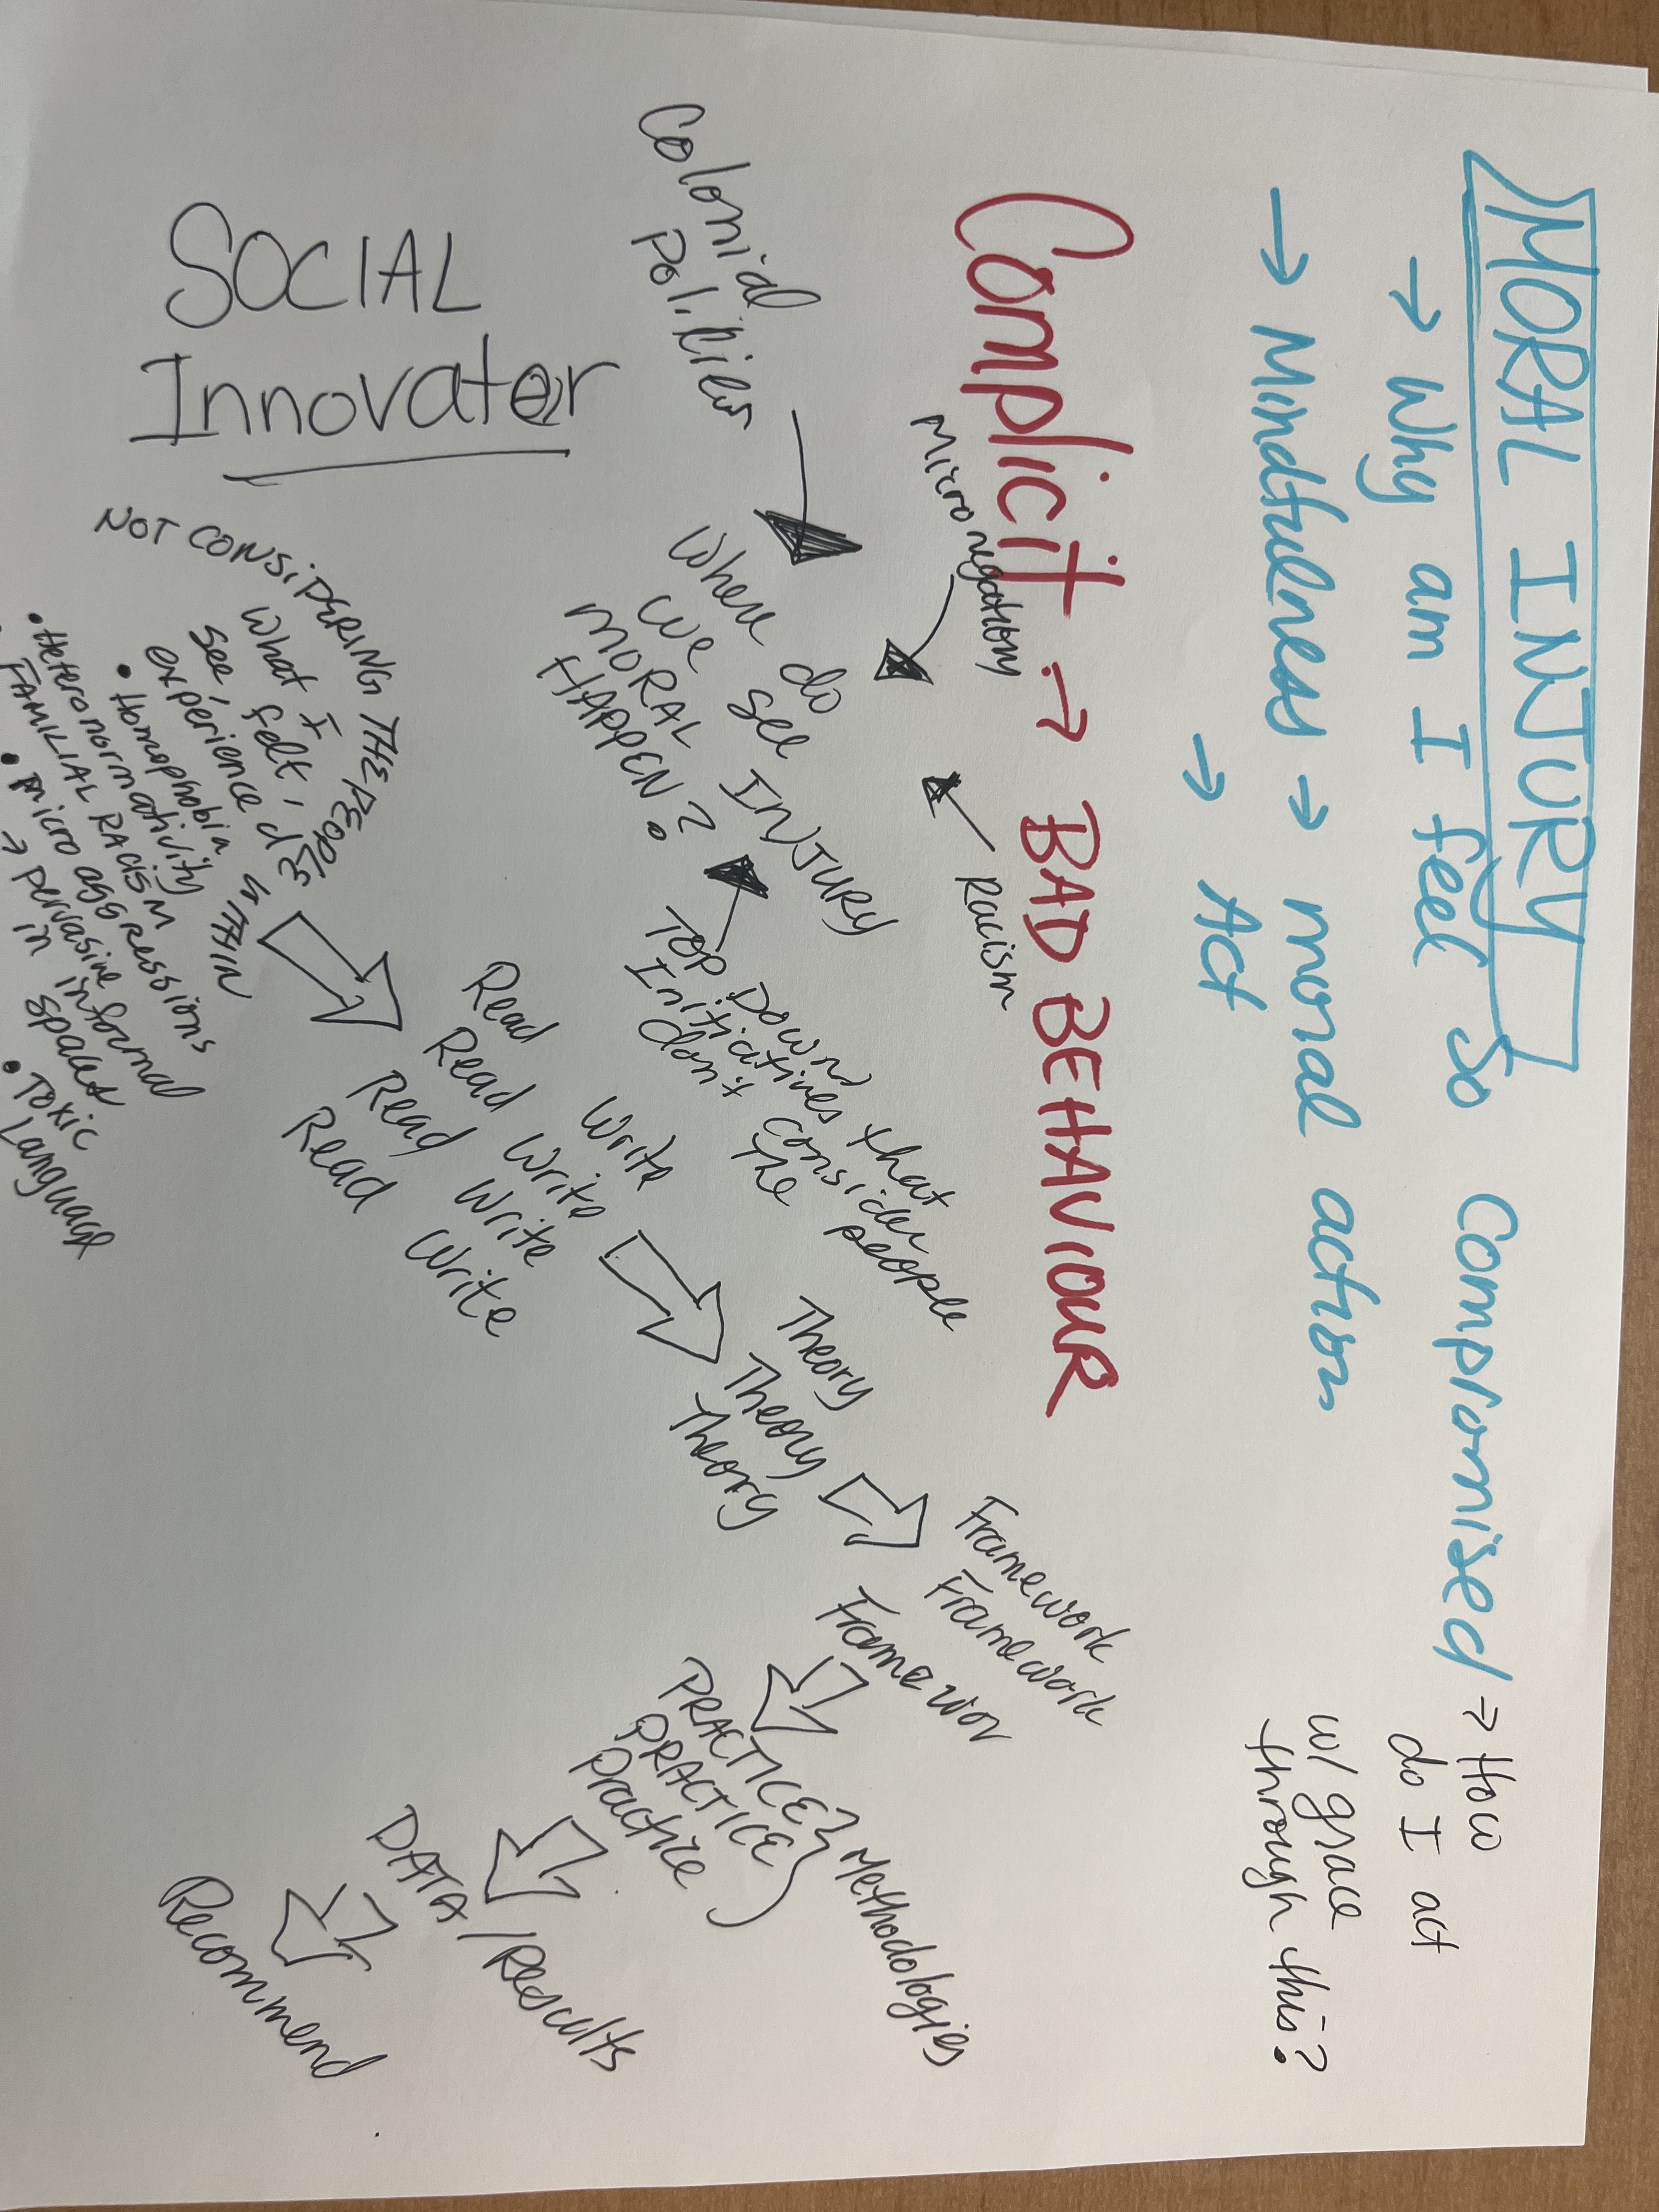 MORAL INJURY
→ Why am I feel so Compromised → How
do I act
w/ grace
through this?
→ Mindfulness → moral action
→ Act
Complicit → BAD BEHAVIOUR
Micro
Racism
Colonial
Policies
Where do
we see
MORAL INJURY
HAPPEN?
TOP DOWN
Initiatives that
don't consider
the people
SOCIAL
Innovator
NOT CONSIDERING THE PEOPLE WITHIN
What I
see, felt,
experienced
• Homophobia
• Heteronormativity
FAMILIAL RACISM
• Micro aggressions
→ pervasive
in informal
spaces
• Toxic
Language
Read
Read
Read
Read
Write
Write
Write
Write
Theory
Theory
Theory
Framework
Framework
Framewor
PRACTICE
PRACTICE
Practice
Methodologies
DATA/Results
Recommend